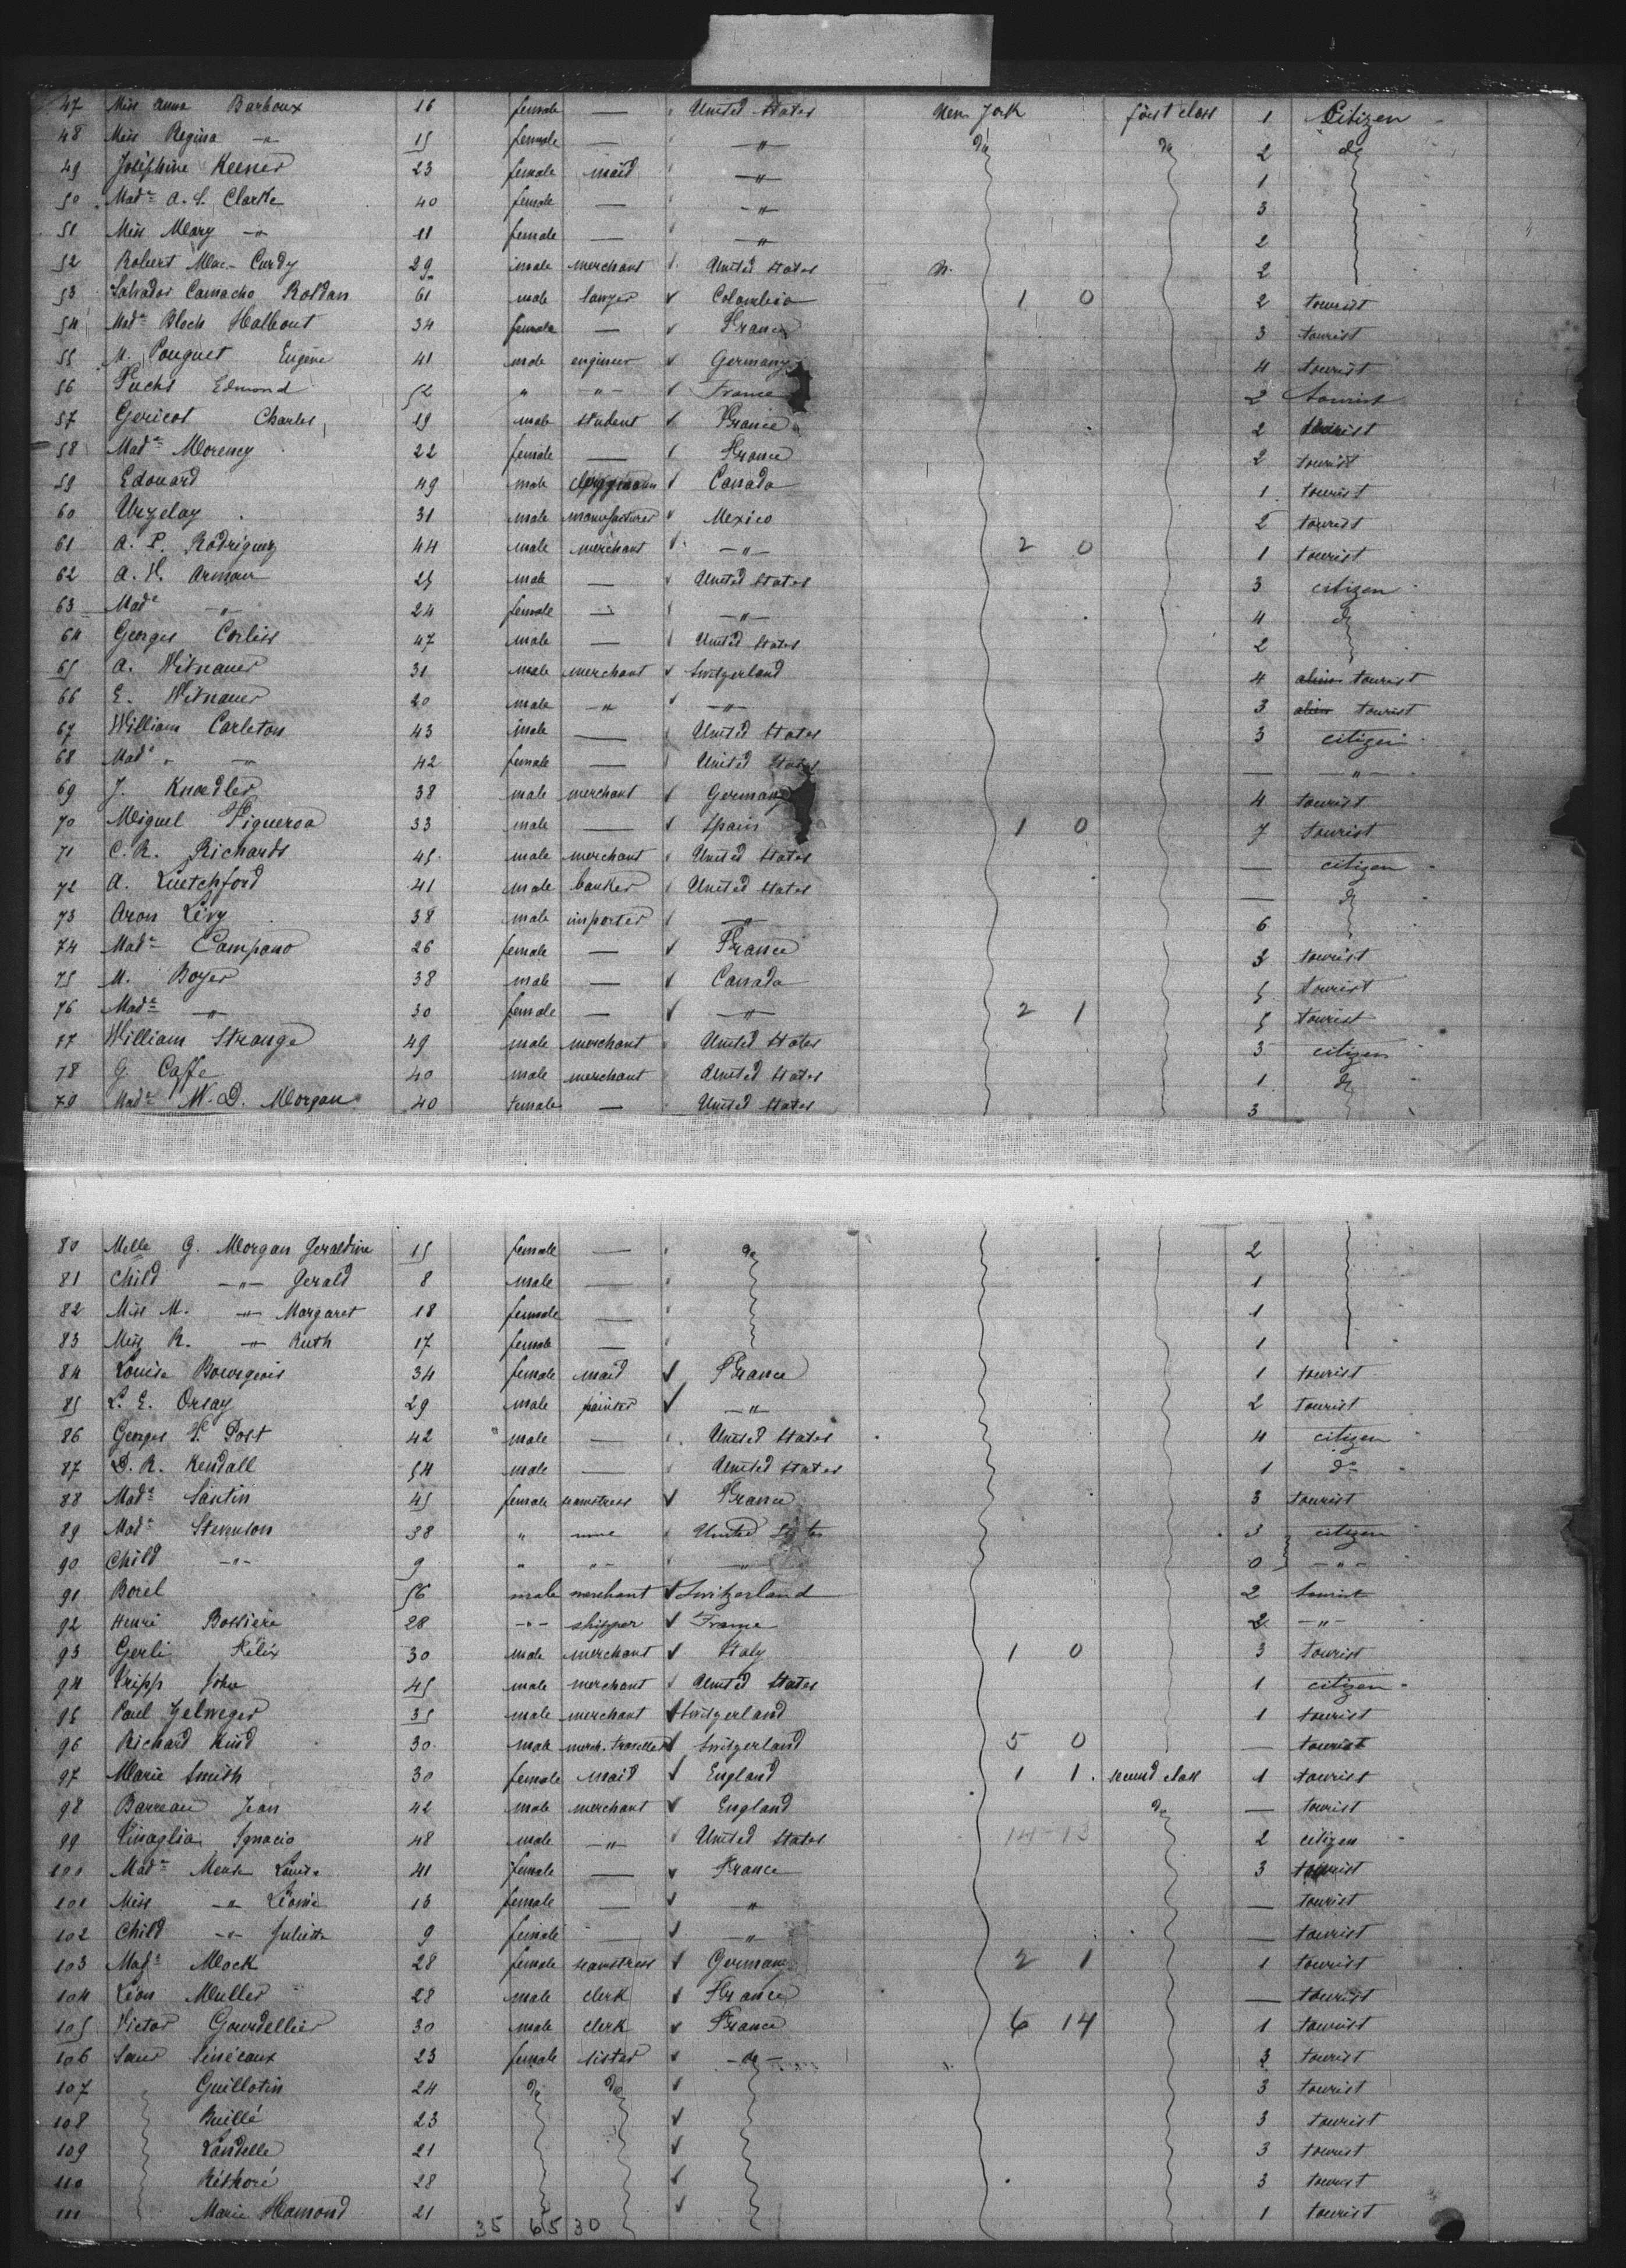 47 Miss Anna Barhoux 16 female — United States New York first class 1 Citizen
48 Miss Regina -"- 15 female — -"- do do 2 do
49 Joséphine Keener 23 female maid -"- 1
50 Made A. S. Clarke 40 female — -"- 3
51 Miss Mary -"- 11 female — -"- 2
52 Robert Mac-Curdy 29 male merchant United States 2
53 Salvador Camacho Roldan 61 male lawyer Colombia 1 0 2 tourist
54 Made Bloch Halbout 34 female — France 3 tourist
55 M. Pouquet Eugène 41 male engineer Germany 4 tourist
56 Fuchs Edmond 52 " -"- France 2 tourist
57 Gericot Charles 19 male student France 2 tourist
58 Made Morency 22 female — France 2 tourist
59 Edouard 49 male clergymann Canada 1 tourist
60 Uryelay 31 male manufacturer Mexico 2 tourist
61 A. P. Rodriguez 44 male merchant -"- 2 0 1 tourist
62 A. H. Armour 25 male — United States 3 citizen
63 Made -"- 24 female — -"- 4 do
64 Georges Corliss 47 male — United States 2
65 A. Witnauer 31 male merchant Switzerland 4 alien tourist
66 E. Witnauer 20 male -"- -"- 3 alien tourist
67 William Carleton 43 male — United States 3 citizen
68 Made -"- 42 female — United States — -"-
69 J. Knoedler 38 male merchant Germany 4 tourist
70 Miguel Figueroa 33 male — Spain 1 0 7 tourist
71 C. R. Richards 45 male merchant United States — citizen
72 A. Luetchford 41 male banker United States — do
73 Aron Lévy 38 male importer -"- 6
74 Made Campano 26 female — France 3 tourist
75 M. Boyer 38 male — Canada 5 tourist
76 Made -"- 30 female — -"- 2 1 5 tourist
77 William Strange 49 male merchant United States 3 citizen
78 G Caffe 40 male merchant United States 1 do
79 Made W. D. Morgan 40 female — United States 3
80 Melle G. Morgan Geraldine 15 female — do 2
81 Child -"- Gerald 8 male — 1
82 Miss M. -"- Margaret 18 female — 1
83 Miss R. -"- Ruth 17 female — 1
84 Louise Bourgeois 34 female maid France 1 tourist
85 L. E. Orsay 29 male painter -"- 2 tourist
86 Georges F. Post 42 male — United States 4 citizen
87 D. R. Kendall 54 male — United States 1 do
88 Made Santin 45 female seamstress France 3 tourist
89 Made Stevenson 38 " none United States 3 citizen
90 Child -"- 9 " "- -"- 0 -"-
91 Borel 56 male merchant Switzerland 2 tourist
92 Henri Bossière 28 -"- shipper France 2 -"-
93 Gerli Félix 30 male merchant Italy 1 0 3 tourist
94 Tripp John 45 male merchant United States 1 citizen
95 Paul Zelweger 35 male merchant Switzerland 1 tourist
96 Richard Kind 30 male merch. traveller Switzerland 5 0 — tourist
97 Marie Smith 30 female maid England 1 1 second class 1 tourist
98 Barreau Jean 42 male merchant England do — tourist
99 Vinaglia Ignacio 48 male -"- United States 14-13 2 citizen
100 Made Mensk Louise 41 female — France 3 tourist
101 Miss -"- Léonie 13 female — " — tourist
102 Child -"- Juliette 9 female — -"- — tourist
103 Made Mock 28 female seamstress Germany 2 1 1 tourist
104 Léon Muller 28 male clerk France — tourist
105 Victor Gourdellier 30 male clerk France 6 14 1 tourist
106 Sœur Sénécaux 23 female sister do 3 tourist
107 Guillotin 24 do do 3 tourist
108 Buillé 23 3 tourist
109 Landelle 21 3 tourist
110 Réthoré 28 3 tourist
111 Marie Hamond 21 1 tourist
35 65 30